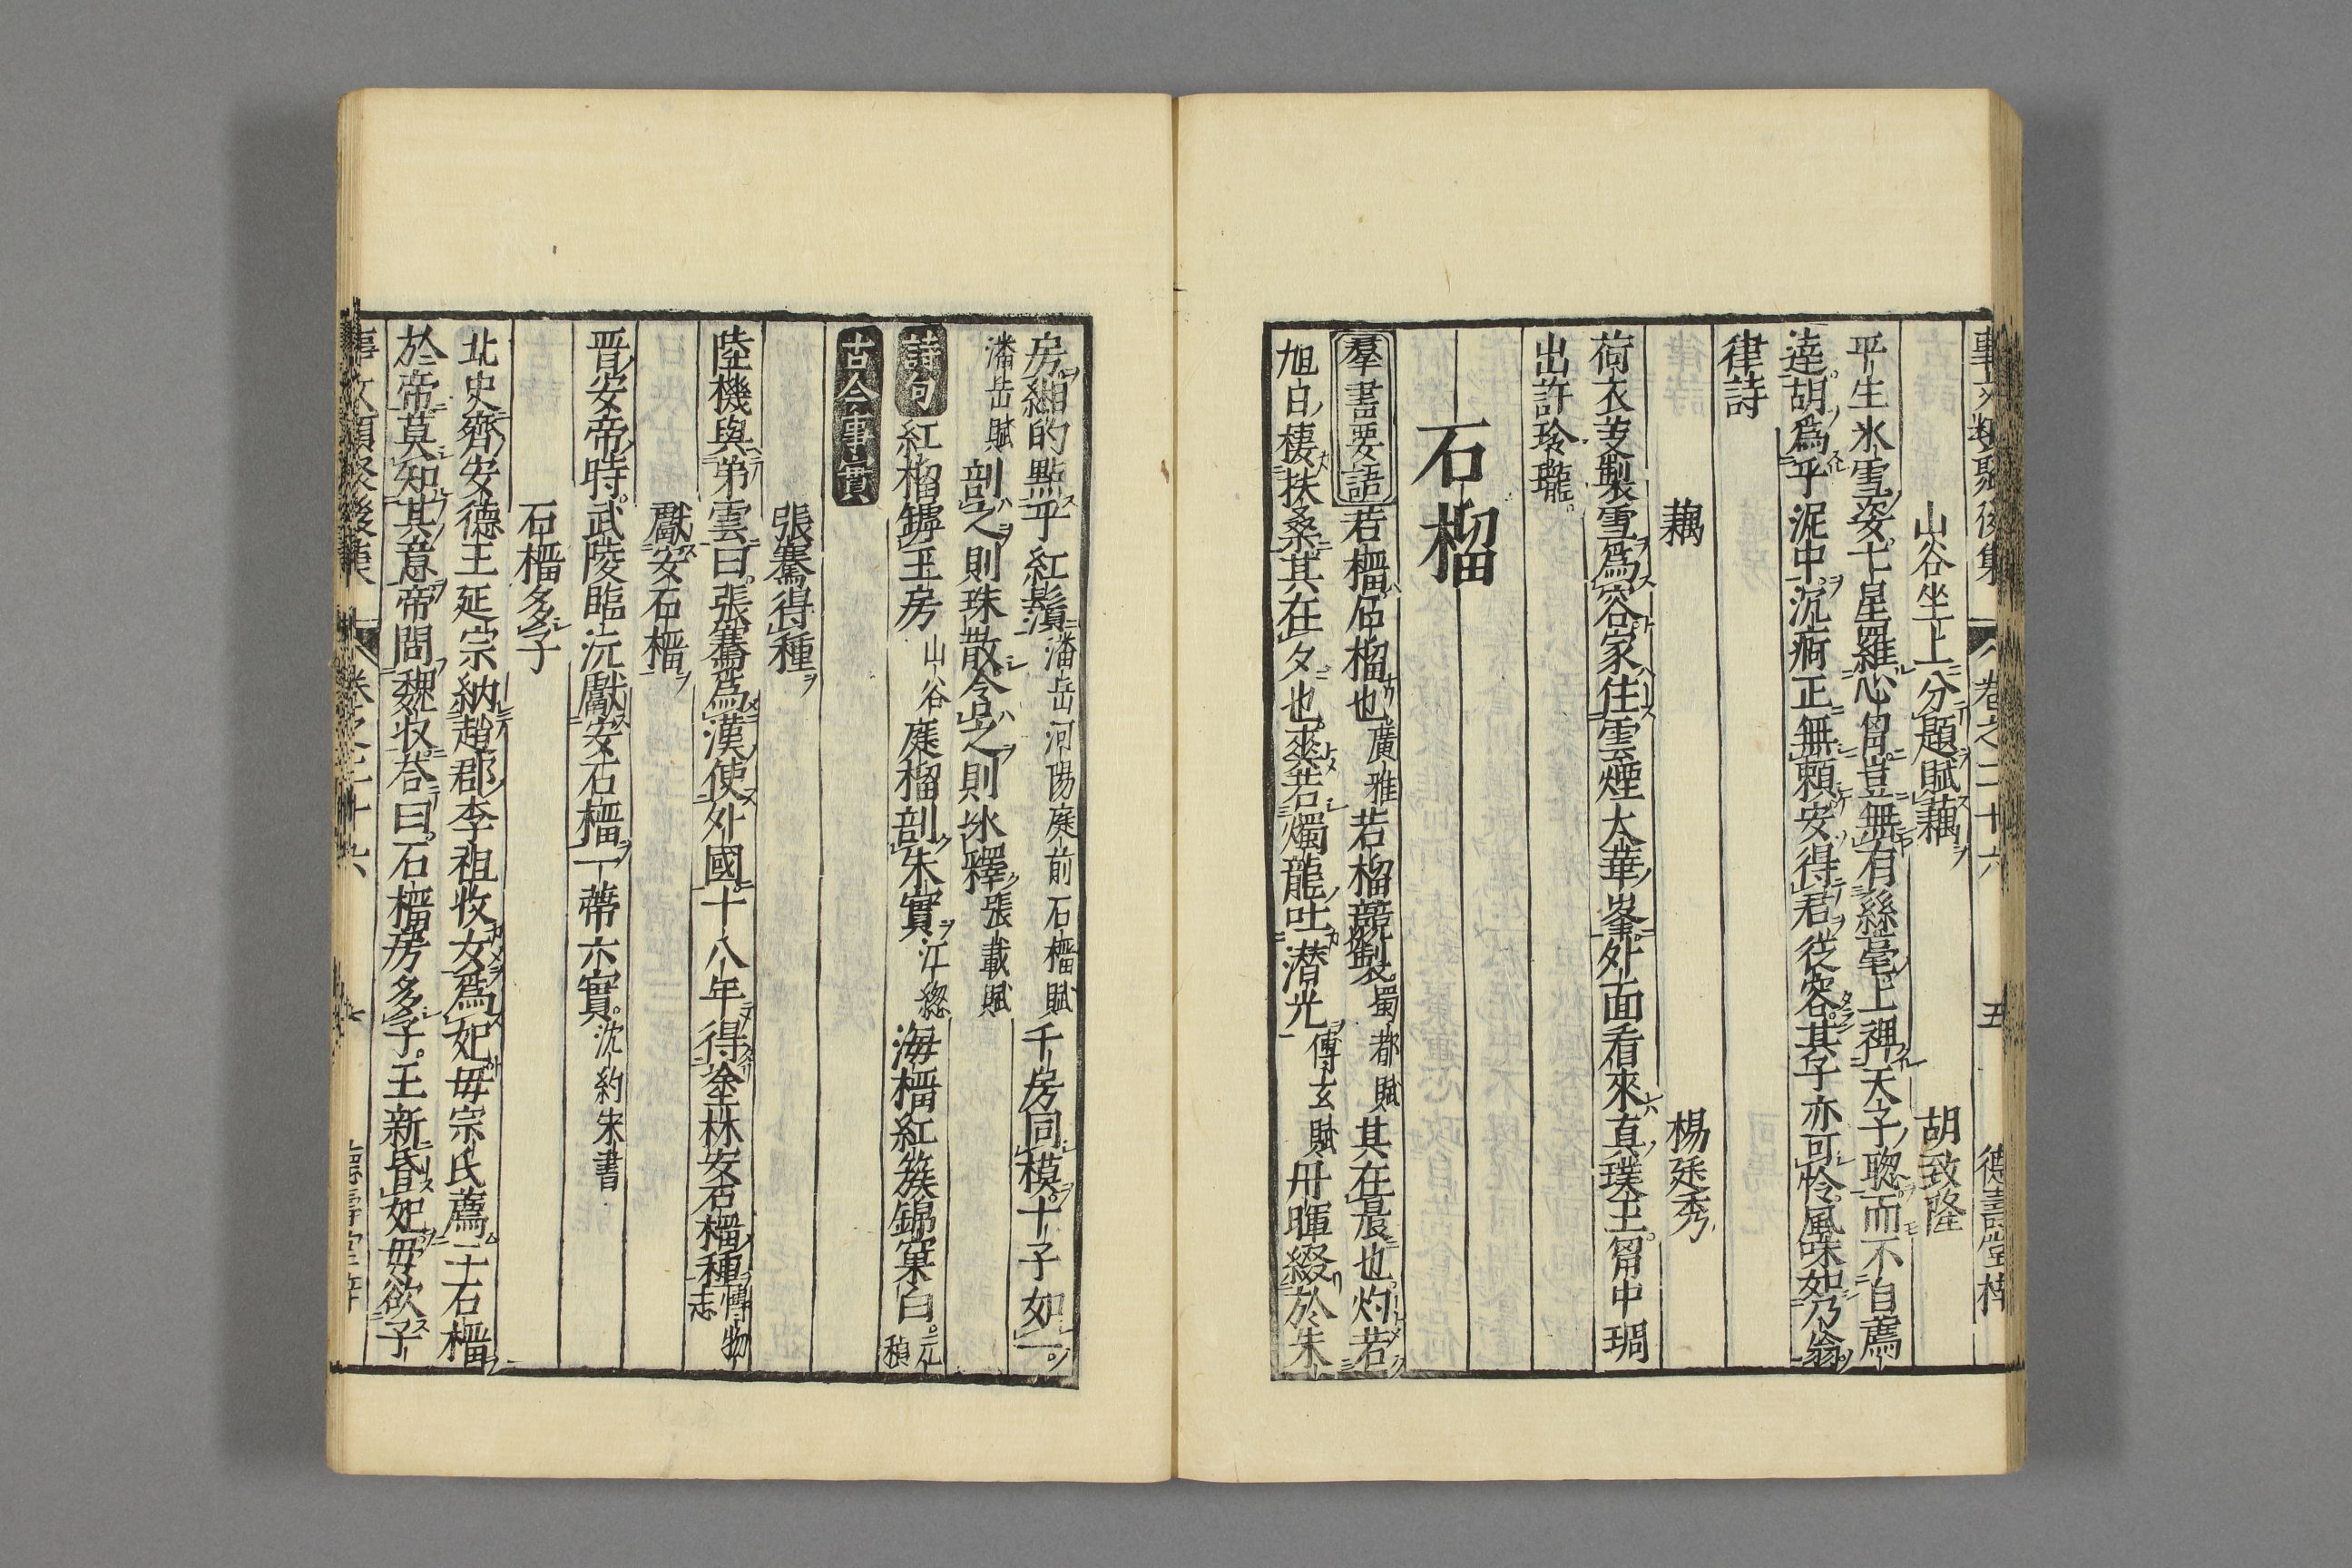 事文類聚後集 卷之二十六 五 德壽堂梓
山谷坐上分題賦藕 胡致隆
平生氷雪姿七星羅心胷豈無有絲毫上裨天子聦而不自薦
達胡爲乎泥中沉痾正無頼安得君從容其子亦可怜風味如乃翁
律詩
藕 楊廷秀
荷衣芰製雪爲容家住雲煙太華峯外面看來真璞玉胷中琱
出許玲瓏
石榴
羣書要語 若橊石榴也廣雅 若榴競製蜀都賦 其在晨也灼若
旭日棲扶桑其在夕也爽若燭龍吐潜光傳玄賦 丹暉綴於朱
房緗的點乎紅鬚潘岳河陽庭前石橊賦 千房同模十子如一
潘岳賦 剖之則珠散含之則氷釋張載賦
詩句 紅榴罅玉房山谷 庭榴剖朱實江緫 海橊紅簇錦窠白元稹
古今事實
張騫得種
陸機與弟雲曰張騫爲漢使外國十八年得塗林安石橊種博物志
獻安石橊
晋安帝時武陵臨沅獻安石橊一蔕六實沈約宋書
石橊多子
北史齊安德王延宗納趙郡李祖收女爲妃母宗氏薦二石橊
於帝莫知其意帝問魏收荅曰石橊房多子王新昏妃母欲子
事文類聚後集 卷之二十六